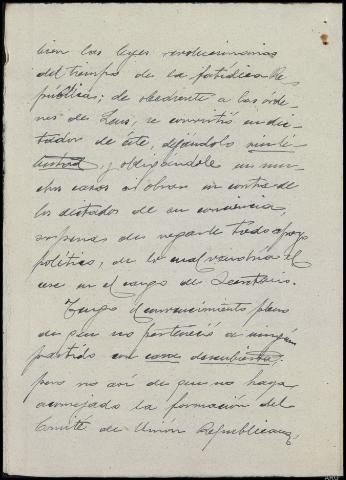 bien las leyes revolucionarias
del tiempo de la fatídica Re-
pública; de obediente a las órde-
nes de Luis, se convirtió en dic-
tador de éste, dejándolo
y obligándole en mu-
chos casos a obrar en contra de
los dictados de su conciencia,
so pena de negarle todo apoyo
político, de lo cual vendría el
cese en el cargo de Secretario.
Tengo el convencimiento pleno
de que no perteneció a ningún
partido con descubierta;
pero no así de que no haya
aconsejado la formación del
Comité de Unión Republicana,